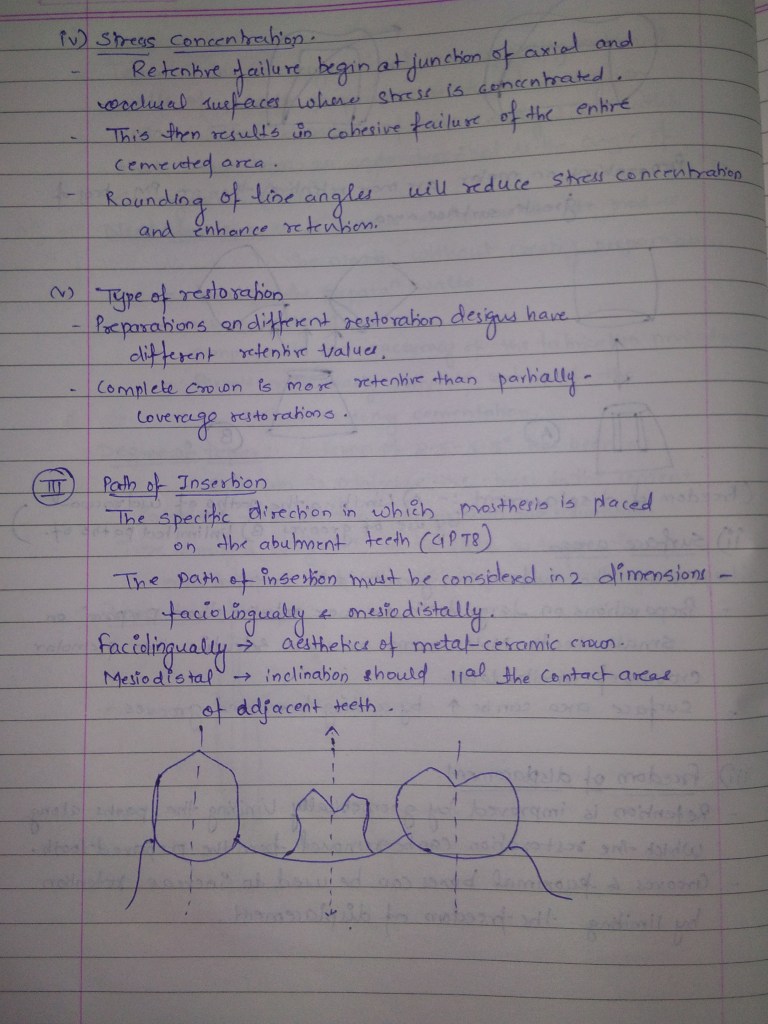 iv) Stress Concentration.
- Retentive failure begin at junction of axial and
occlusal surfaces where stress is concentrated.
- This then results in cohesive failure of the entire
cemented area.
- Rounding of line angles will reduce stress concentration
and enhance retention.
(v) Type of restoration
- Preparations on different restoration designs have
different retentive values.
- Complete crown is more retentive than partially-
coverage restorations.
III Path of Insertion
The specific direction in which prosthesis is placed
on the abutment teeth (GPT8)
The path of insertion must be considered in 2 dimensions -
faciolingually & mesiodistally.
Faciolingually → aesthetics of metal-ceramic crown.
Mesiodistal → inclination should llal the contact areas
of addjacent teeth.